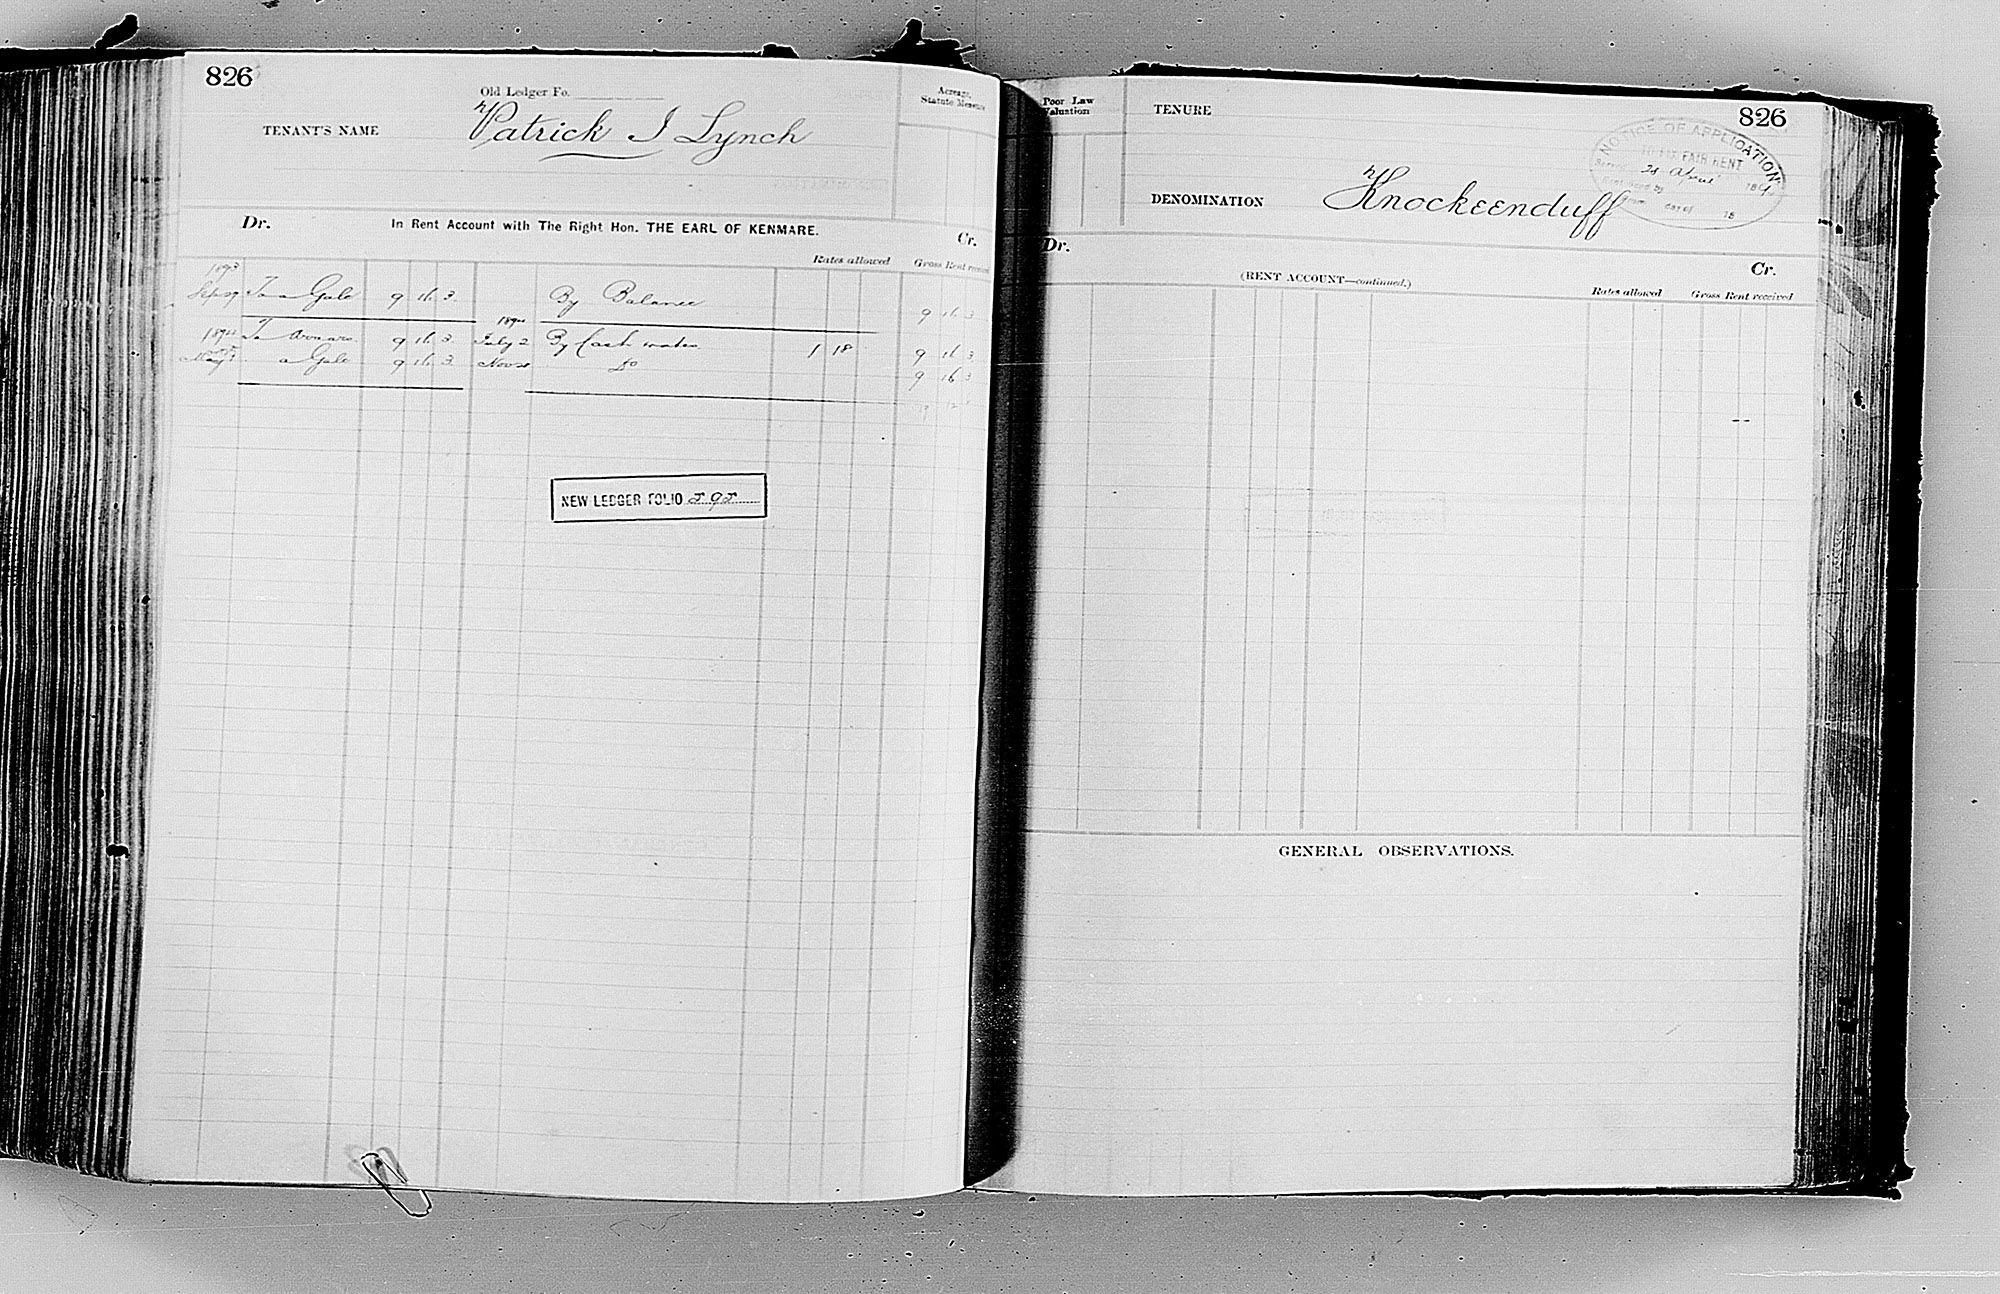 826
Old Ledger Fo.
TENANT'S NAME Patrick J Lynch
Acreage, Statute Measure
Dr. In Rent Account with The Right Hon. THE EARL OF KENMARE. Cr.
Rates allowed Gross Rent received
1893
Sep 29 To a Gale 9 16 3 By Balance 9 16 3
1894
1894 To Arrears 9 16 3 July 2 By Cash 1 18 9 16 3
May 1 a Gale 9 16 3 Do 9 16 3
NEW LEDGER FOLIO 292
Poor Law Valuation
TENURE
826
NOTICE OF APPLICATION
TO FIX FAIR RENT
28 April 189
day of 18
DENOMINATION Knockeenduff
Dr. Cr.
(RENT ACCOUNT—continued.)
Rates allowed Gross Rent received
GENERAL OBSERVATIONS.